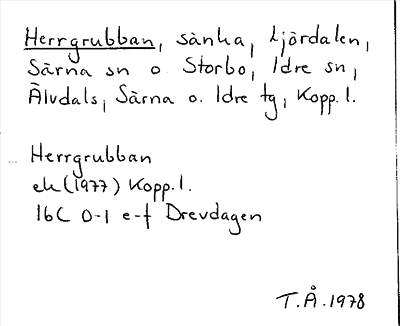 Herrgrubban, sänka, Ljördalen,
Särna sn o Storbo, Idre sn,
Älvdals, Särna o. Idre tg, Kopp. l.
Herrgrubban
ek (1977) Kopp. l.
16C 0-1 e-f Drevdagen
T.Å. 1978